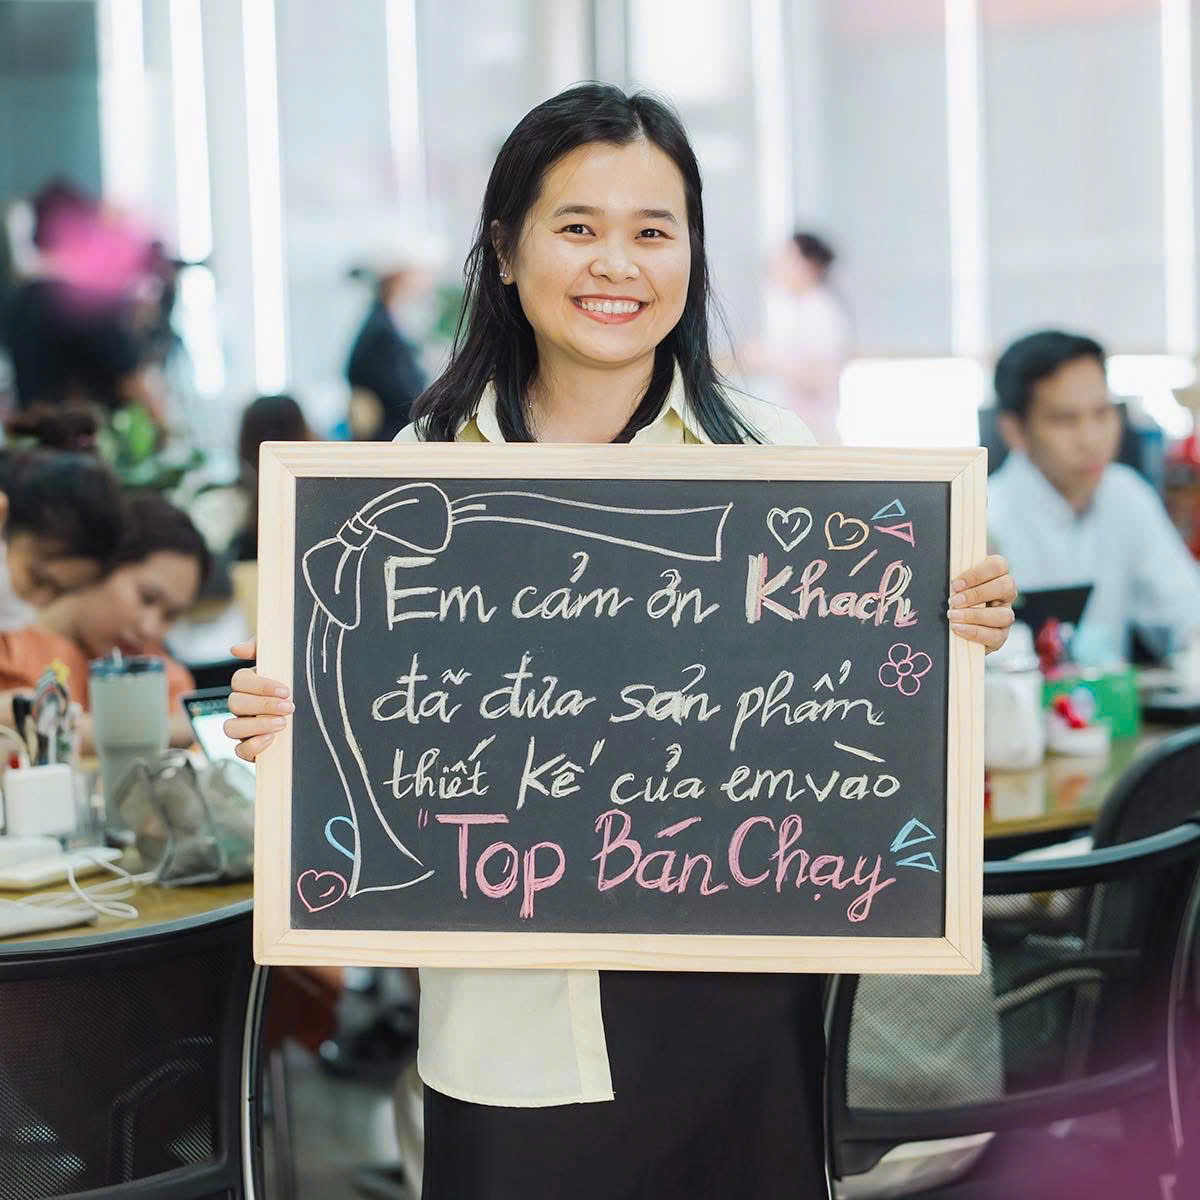 Em cảm ơn Khách
đã đưa sản phẩm
thiết kế của em vào
"Top Bán Chạy